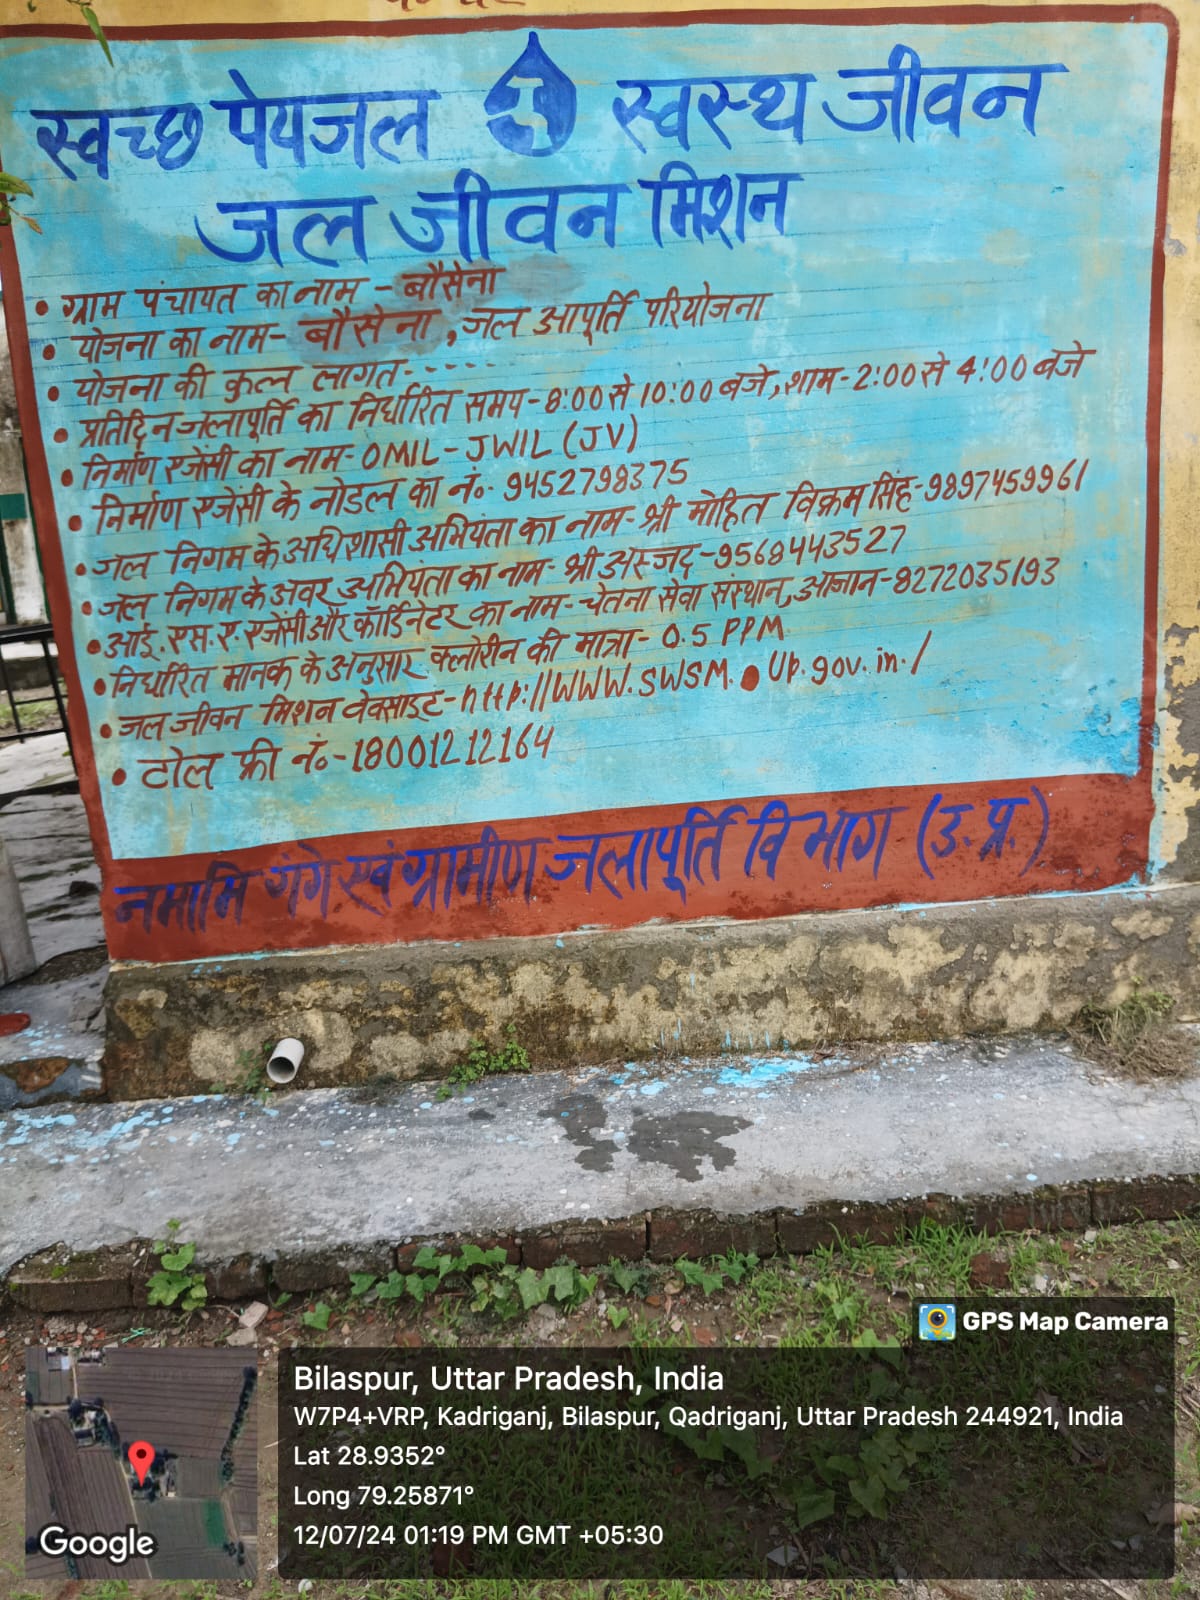 स्वच्छ पेयजल स्वस्थ जीवन
जल जीवन मिशन
• ग्राम पंचायत का नाम - बौसेना
• योजना का नाम- बौसेना, जल आपूर्ति परियोजना
• योजना की कुल लागत------
• प्रतिदिन जलापूर्ति का निर्धारित समय-8:00 से 10:00 बजे, शाम-2:00 से 4:00 बजे
• निर्माण एजेंसी का नाम-OMIL-JWIL (JV)
• निर्माण एजेंसी के नोडल का नं०- 9452798375
• जल निगम के अधिशासी अभियंता का नाम-श्री मोहित विक्रम सिंह-9897459961
• जल निगम के अवर अभियंता का नाम- श्री अस्जद-9568443527
• आई.एस.ए. एजेंसी और कॉर्डिनेटर का नाम-चेतना सेवा संस्थान, आजान-8272035193
• निर्धारित मानक के अनुसार क्लोरीन की मात्रा- 0.5 PPM
• जल जीवन मिशन वेबसाइट-http://WWW.SWSM.Up.gov.in./
• टोल फ्री नं०-18001212164
नमामि गंगे एवं ग्रामीण जलापूर्ति विभाग (उ.प्र.)
GPS Map Camera
Bilaspur, Uttar Pradesh, India
W7P4+VRP, Kadriganj, Bilaspur, Qadriganj, Uttar Pradesh 244921, India
Lat 28.9352°
Long 79.25871°
12/07/24 01:19 PM GMT +05:30
Google